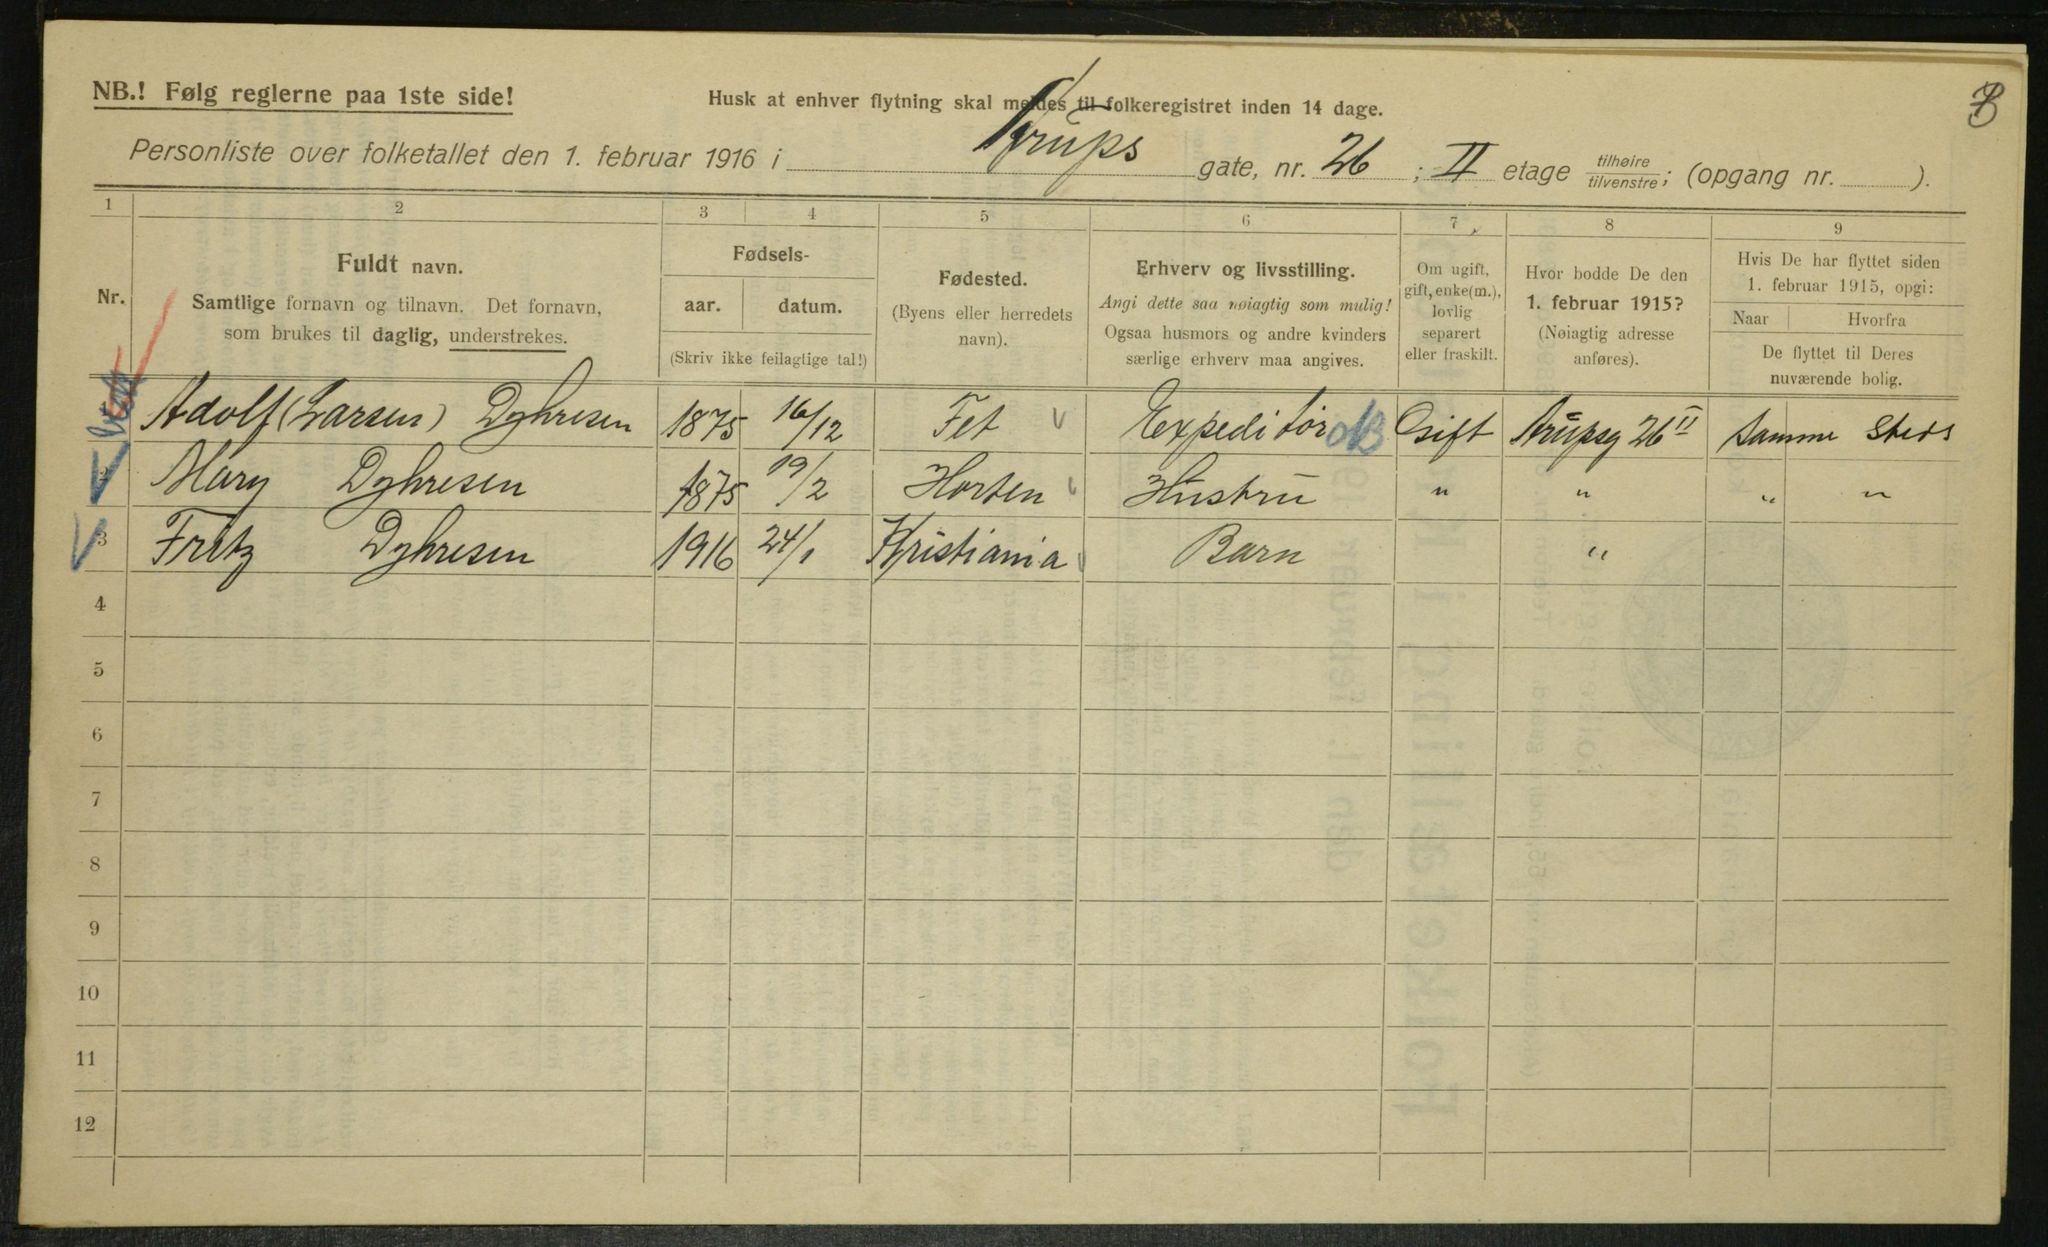 NB.! Følg reglerne paa 1ste side!
Husk at enhver flytning skal meldes til folkeregistret inden 14 dage.
Personliste over folketallet den 1. februar 1916 i Arups gate, nr. 26 ; II etage tilhøire/tilvenstre; (opgang nr. ).
1 2 3 4 5 6 7 8 9
Nr.
Fuldt navn.
Samtlige fornavn og tilnavn. Det fornavn,
som brukes til daglig, understrekes.
Fødsels-
aar. datum.
(Skriv ikke feilagtige tal!)
Fødested.
(Byens eller herredets
navn).
Erhverv og livsstilling.
Angi dette saa nøiagtig som mulig!
Ogsaa husmors og andre kvinders
særlige erhverv maa angives.
Om ugift,
gift, enke(m.),
lovlig
separert
eller fraskilt.
Hvor bodde De den
1. februar 1915?
(Nøiagtig adresse
anføres).
Hvis De har flyttet siden
1. februar 1915, opgi:
Naar Hvorfra
De flyttet til Deres
nuværende bolig.
Adolf (Larsen) Dyhresen 1875 16/12 Fet Expeditør Gift Arupsg 26 II Samme Sted
2 Mary Dyhresen 1875 19/2 Horten Hustru " " " "
3 Fritz Dyhresen 1916 24/1 Kristiania Barn "
4
5
6
7
8
9
10
11
12